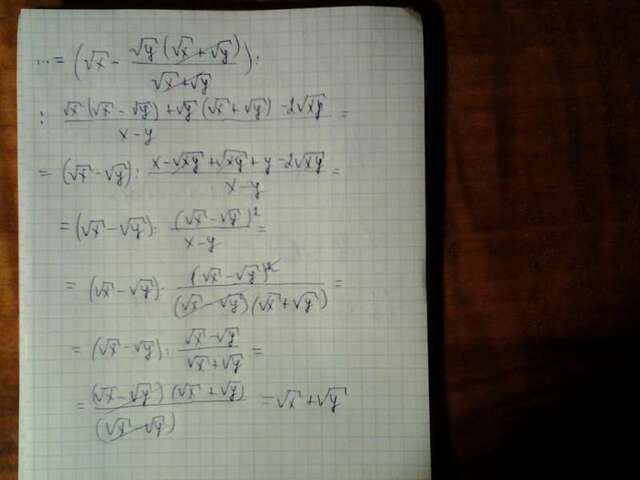 ... = (√x - √y (√x + √y) / √x + √y) :
: √x (√x - √y) + √y (√x + √y) - 2√xy / x - y =
= (√x - √y) : x - √xy + √xy + y - 2√xy / x - y =
= (√x - √y) : (√x - √y)² / x - y =
= (√x - √y) : (√x - √y)² / (√x - √y)(√x + √y) =
= (√x - √y) : √x - √y / √x + √y =
= (√x - √y)(√x + √y) / (√x - √y) = √x + √y